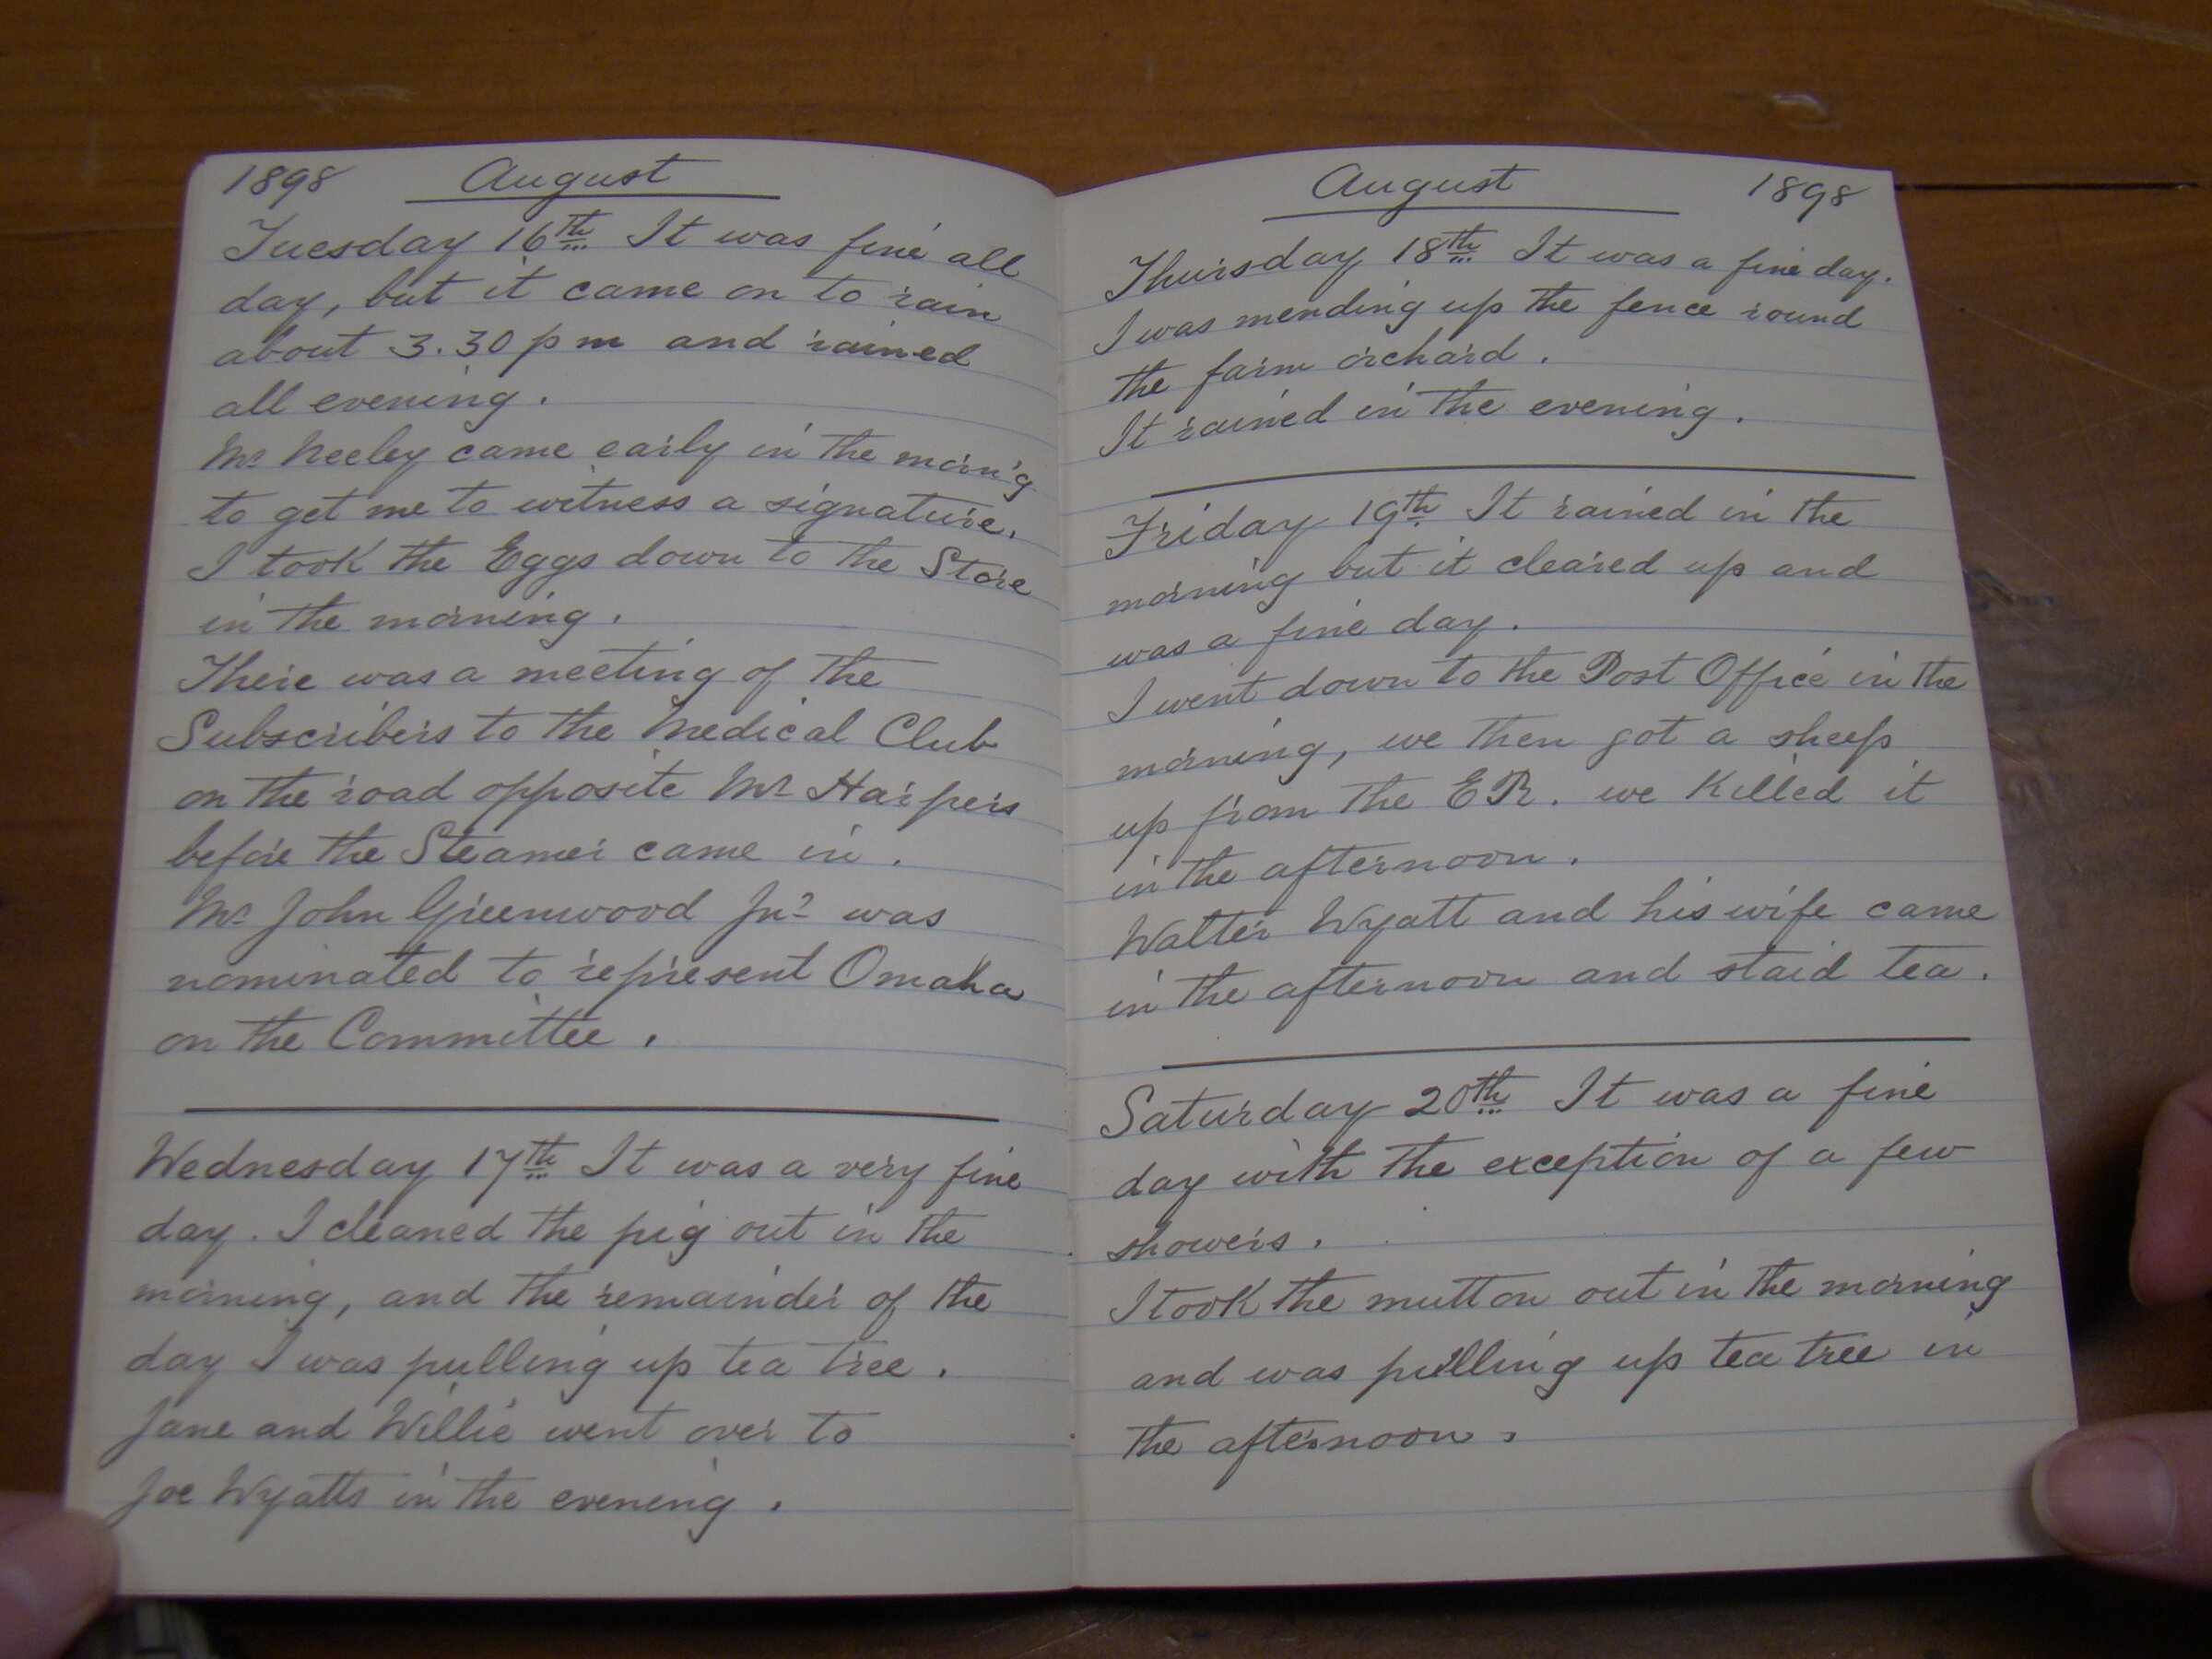 1898 August
Tuesday 16th It was fine all
day, but it came on to rain
about 3.30 pm and rained
all evening.
Mr Neeley came early in the morn'g
to get me to witness a signature.
I took the Eggs down to the Store
in the morning.
There was a meeting of the
Subscribers to the Medical Club
on the road opposite Mr Harpers
before the Steamer came in.
Mr John Greenwood Jnr was
nominated to represent Omaha
on the Committee.
Wednesday 17th It was a very fine
day. I cleaned the pig out in the
morning, and the remainder of the
day I was pulling up tea tree.
Jane and Willie went over to
Joe Wyatts in the evening.
August 1898
Thursday 18th It was a fine day.
I was mending up the fence round
the farm orchard.
It rained in the evening.
Friday 19th It rained in the
morning but it cleared up and
was a fine day.
I went down to the Post Office in the
morning, we then got a sheep
up from the ER. we killed it
in the afternoon.
Walter Wyatt and his wife came
in the afternoon and staid tea.
Saturday 20th It was a fine
day with the exception of a few
showers.
I took the mutton out in the morning
and was pulling up tea tree in
the afternoon.